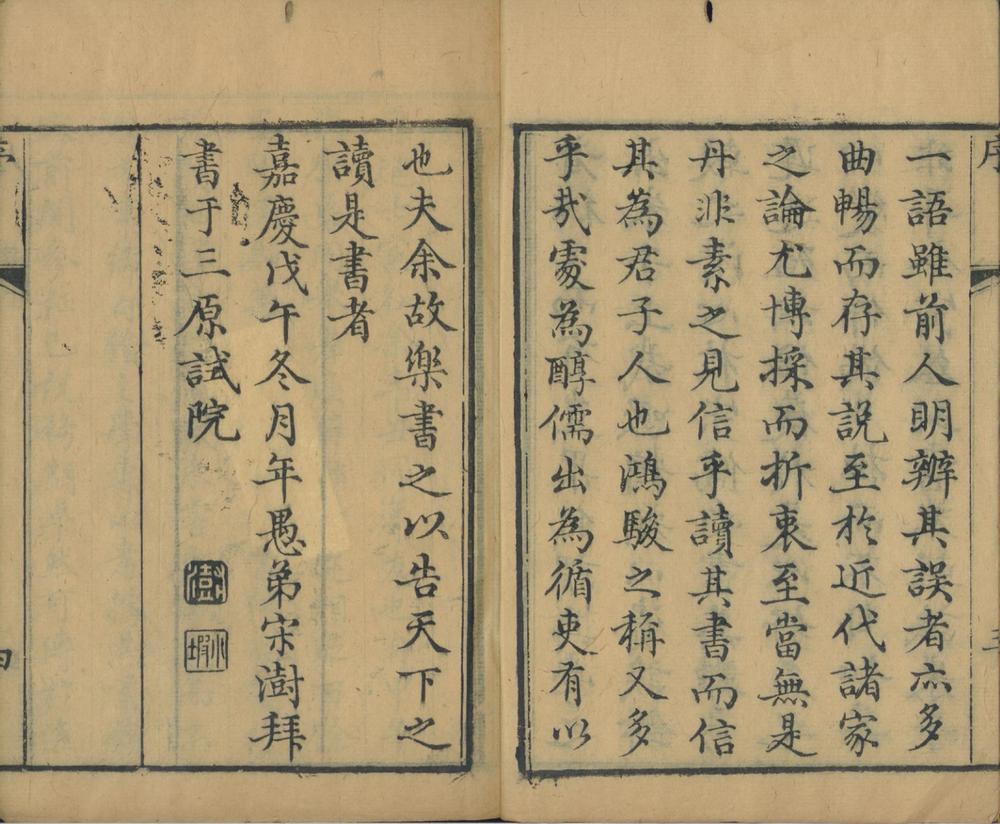 序
三
一語雖前人明辨其誤者亦多
曲暢而存其說至於近代諸家
之論尤博採而折衷至當無是
丹非素之見信乎讀其書而信
其為君子人也鴻駿之稱又多
乎哉處為醇儒出為循吏有以
也夫余故樂書之以告天下之
讀是書者
嘉慶戊午冬月年愚弟宋澍拜
書于三原試院
澍
四